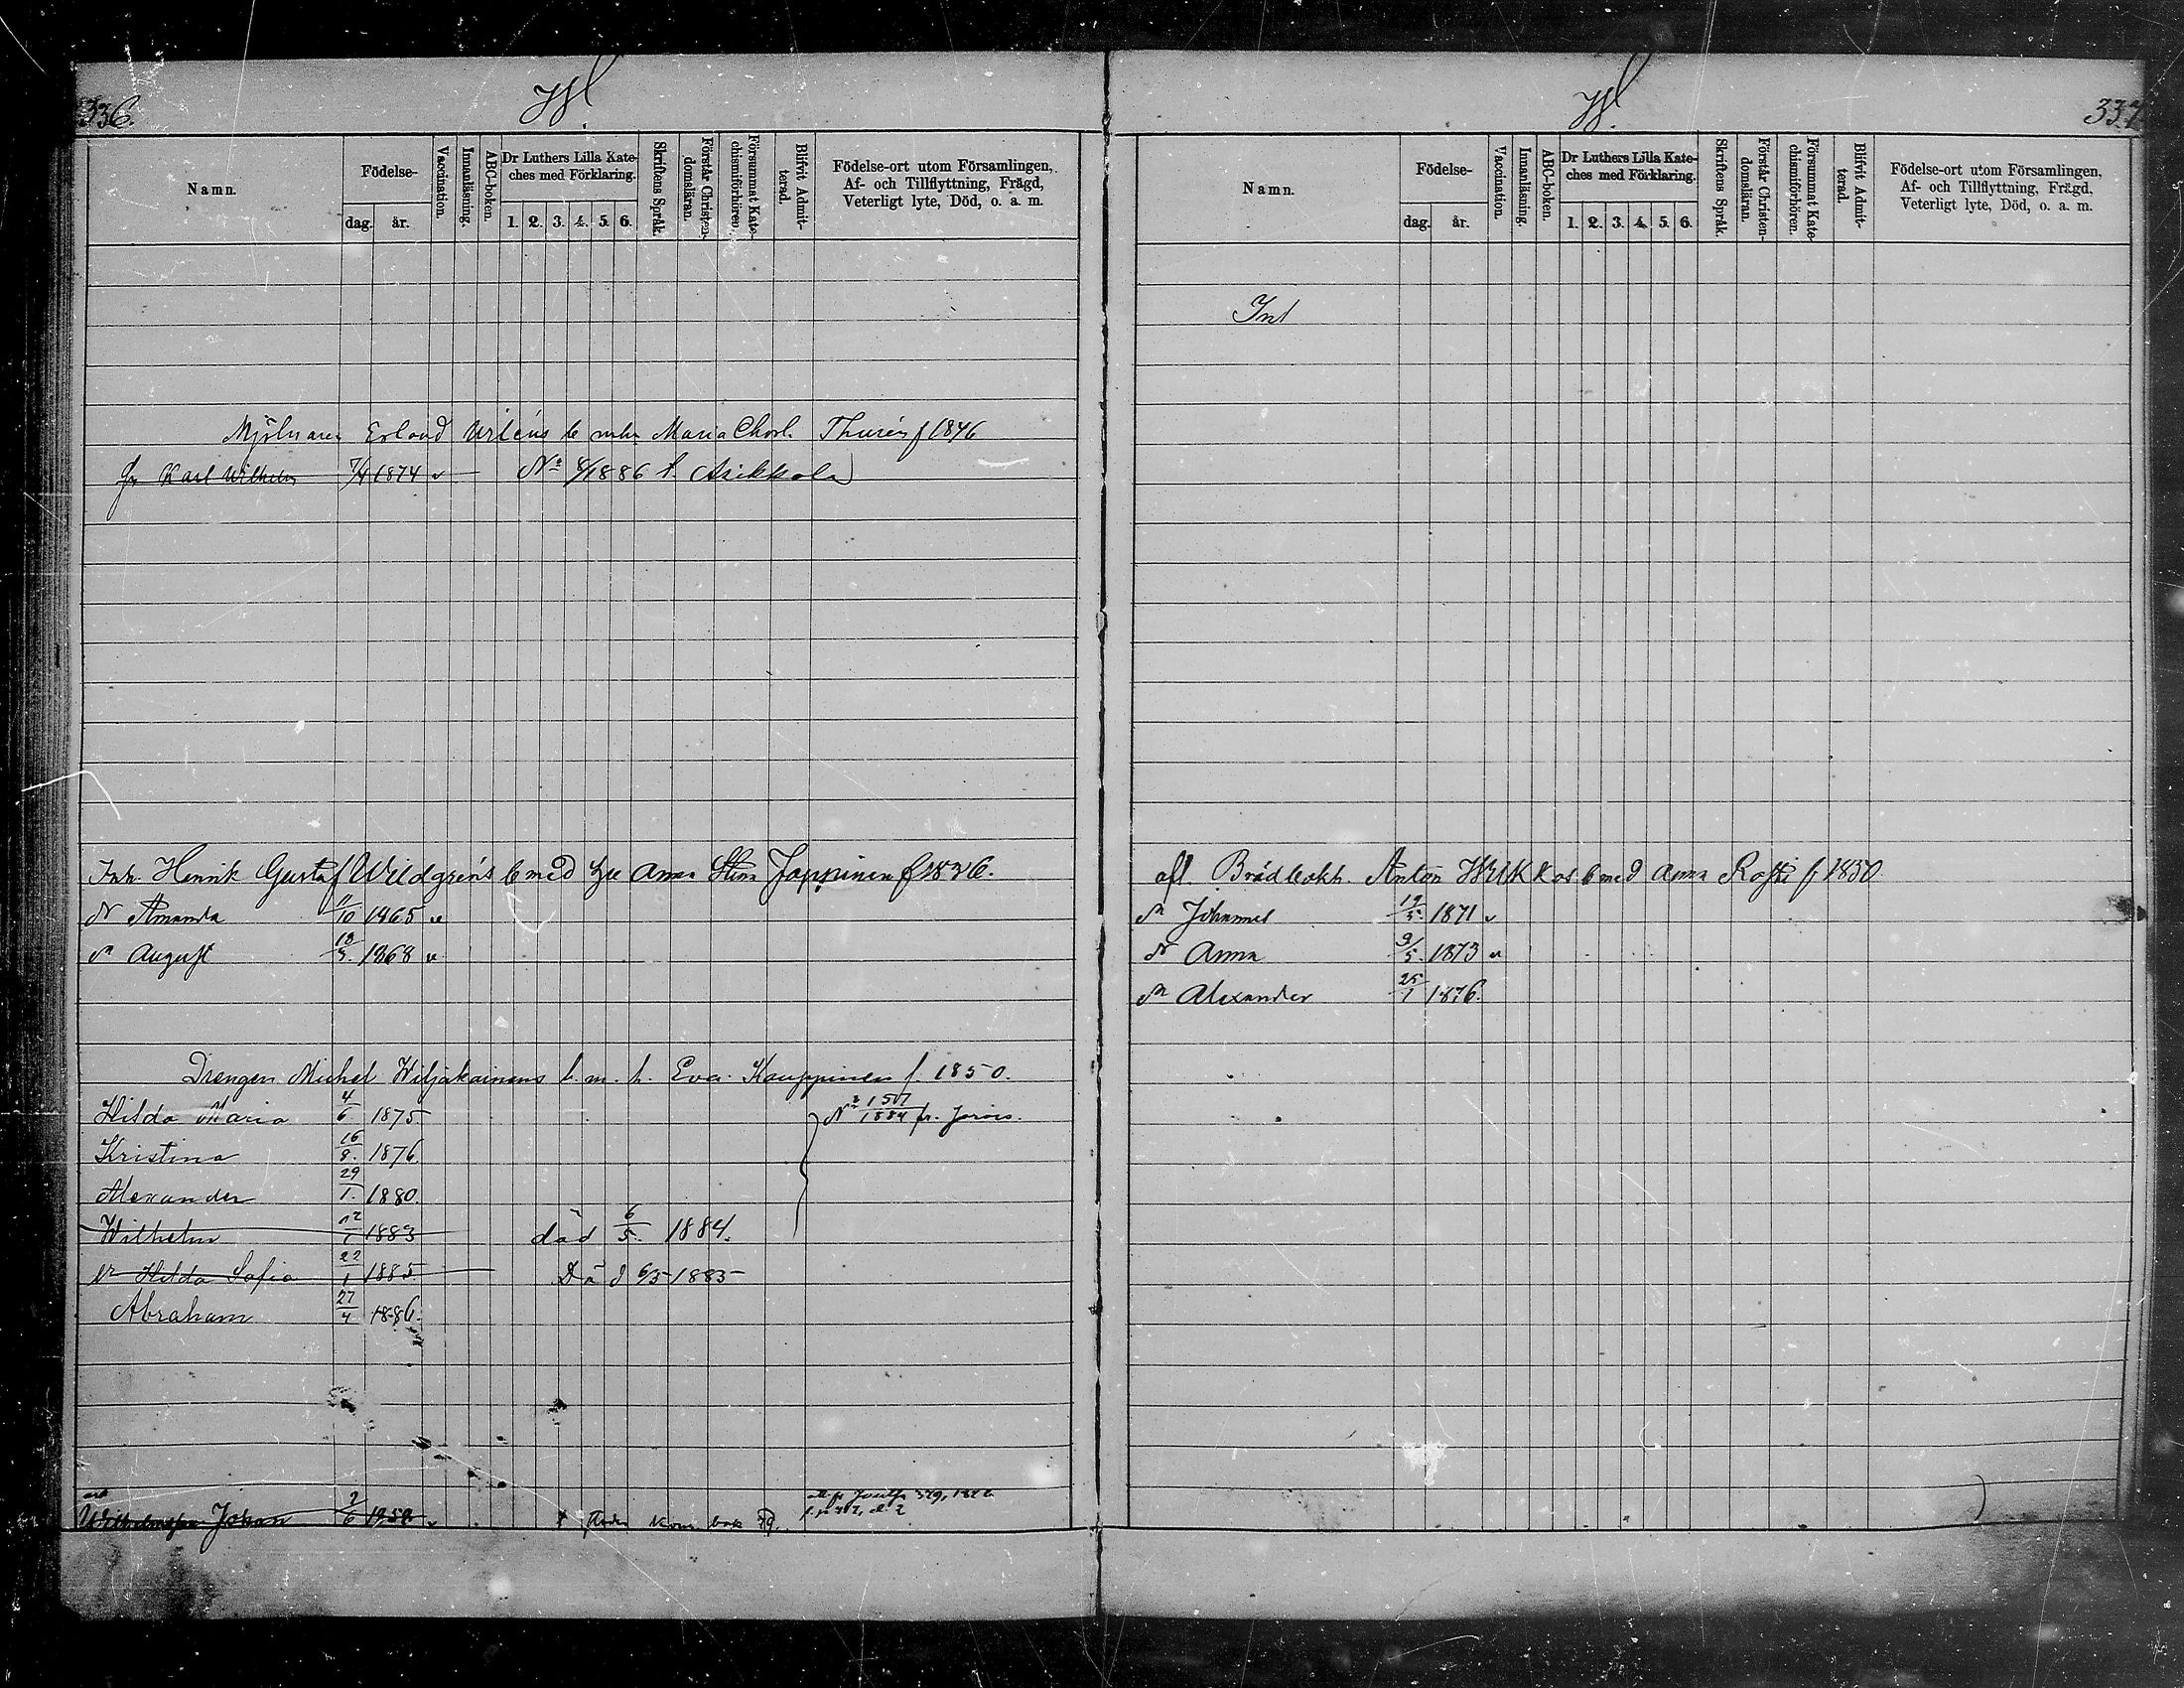 336.
W.
Namn.
Födelse-
dag. år.
Vaccination.
Innanläsning.
ABC-boken.
Dr Luthers Lilla Kate-
ches med Förklaring.
1. 2. 3. 4. 5. 6.
Skriftens Språk.
Förstår Christen-
domsläran.
Försummat Kate-
chismiförhören.
Blifvit Admit-
terad.
Födelse-ort utom Församlingen,
Af- och Tillflyttning, Frägd,
Veterligt lyte, Död, o. a. m.
Mjölnaren Erland b Maria Charl. Thurén f 1846
Karl Wilhelm 7/4 1874 v No 8/1886 t. Asikkola
Inh. Henrik Gustaf Wildgrén's b med hu Anna Stina Jappinen f 1826.
Amanda 11/10 1865 v
August 13/3. 1868 v
Drengen Michel Wiljakainens b. m. h. Eva Kauppinen f. 1850.
Hilda Maria 4/6 1875 fr. Jorois.
Kristina 16/8. 1876
Alexander 29/1. 1880.
Wilhelm 12/1 1883 död 6/5. 1884.
Hilda Sofia 22/1 1885 Död 6/5 1885
Abraham 27/4 1886.
Johan 2/6
W.
337
Namn.
Födelse-
dag. år.
Vaccination.
Innanläsning.
ABC-boken.
Dr Luthers Lilla Kate-
ches med Förklaring.
1. 2. 3. 4. 5. 6.
Skriftens Språk.
Förstår Christen-
domsläran.
Försummat Kate-
chismiförhören.
Blifvit Admit-
terad.
Födelse-ort utom Församlingen,
Af- och Tillflyttning, Frägd,
Veterligt lyte, Död, o. a. m.
afl. Anton b med Anna f 1830
Johannes 19/5. 1871 v
Anna 9/5. 1873 v
Alexander 25/1 1876.